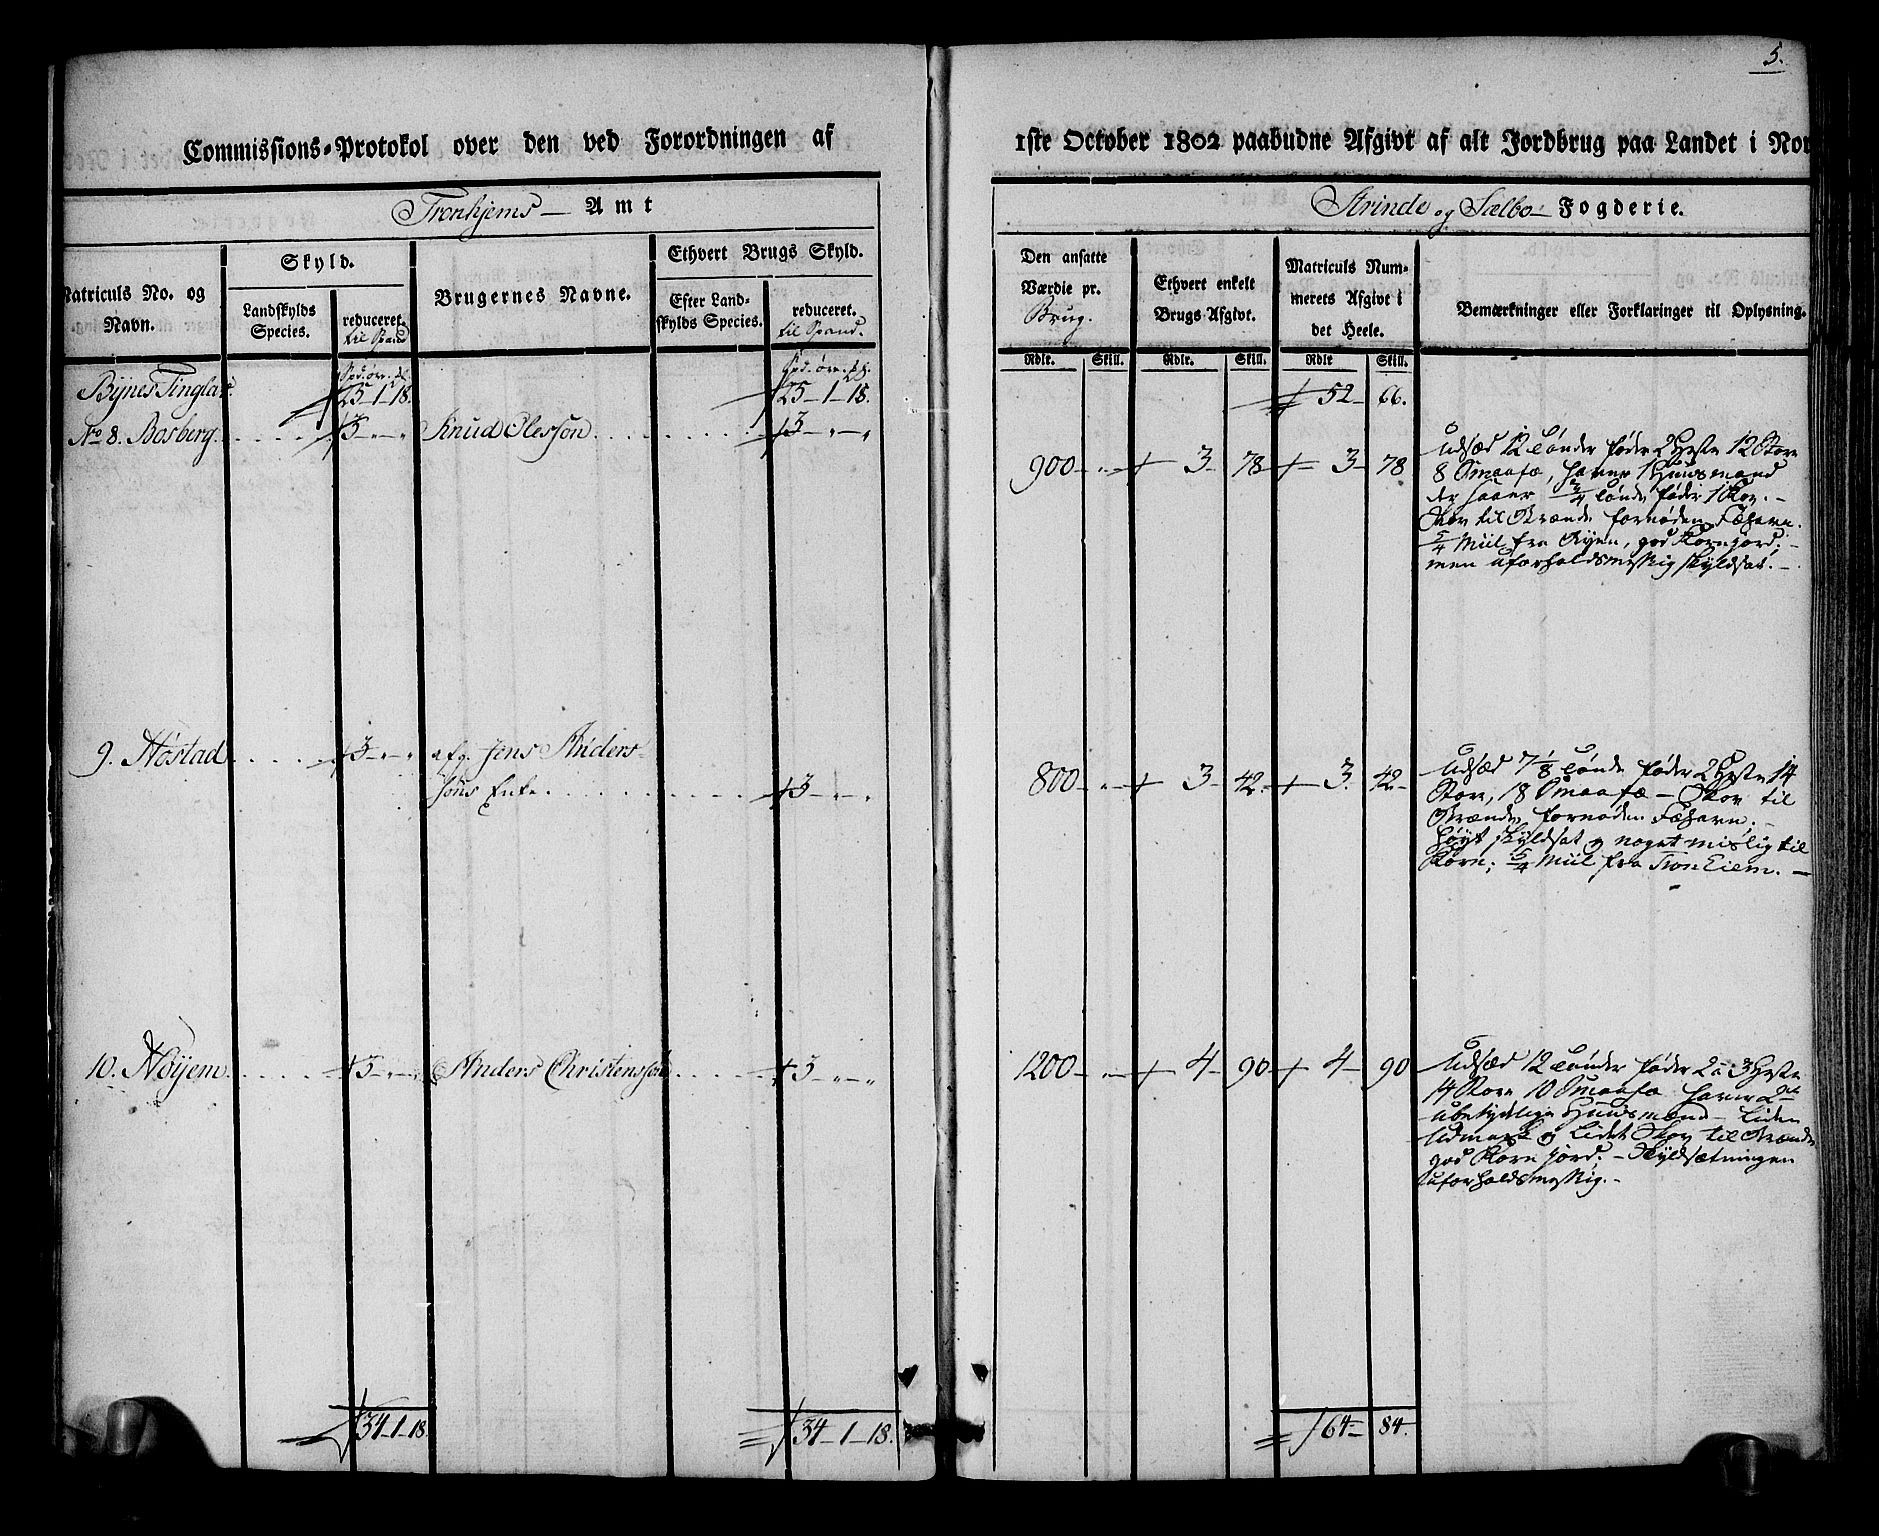 5.
Commissions-Protokol over den ved Forordningen af
1ste October 1802 paabudne Afgivt af alt Jordbrug paa Landet i Nor
Tronhjems Amt
Strinde og Sælbo Fogderie.
Matriculs No. og Navn.
Skyld.
Landskylds Species.
reduceret.
til Spand
Brugernes Navne.
Ethvert Brugs Skyld.
Efter Landskylds Species.
reduceret.
til Spand.
Den ansatte Værdie pr.
Brug.
Ethvert enkelt Brugs Afgivt.
Matriculs Nummerets Afgivt i det Heele.
Bemærkninger eller Forklaringer til Oplysning.
Rdlr. Skill. Rdlr. Skill. Rdlr Skill.
Bynes Tinglav. 25-1-18. 25-1-18. 52- 66.
No 8. Bosberg 3-"-" Knud Olessøn 3-"-"
900-"- 3- 78 3- 78
Udsæd 12 Tønder føder 2 Heste 12 Store
8 Smaafæ, haver 1 Huusmand
der saaer 3/4 Tønde føder 1 Koe.-
Skov til Brænde fornøden Fæhavn.
5/4 Miil fra Byen, god Kornjord;-
men uforholdsmessig skyldsat.-
9. Høstad 3-"-" afg. Jens Anders
søns Enke. 3-"-"
800-"- 3- 42. 3. 42-
Udsæd 7 1/8 Tønde føder 2 Heste 14
Store, 18 Smaafæ - Skov til
Brænde, fornøden Fæhavn,-
høyt skyldsat og noget mislig til
Korn; 5/4 Miil fra Tronhiem.-
10. Høyem 3-"-" Anders Christensøn 3-"-"
1200-"- 4- 90 4- 90
Udsæd 12 Tønder føder 2 a 3 Heste
14 Store 10 Smaafæ haver 2de
ubetydelige Huusmænd - Liden
Udmark og Lidet Skov til Brænde
god Kornjord.- Skyldsætningen
uforholdsmessig.-
34-1-18. 34-1-18. 64- 84.